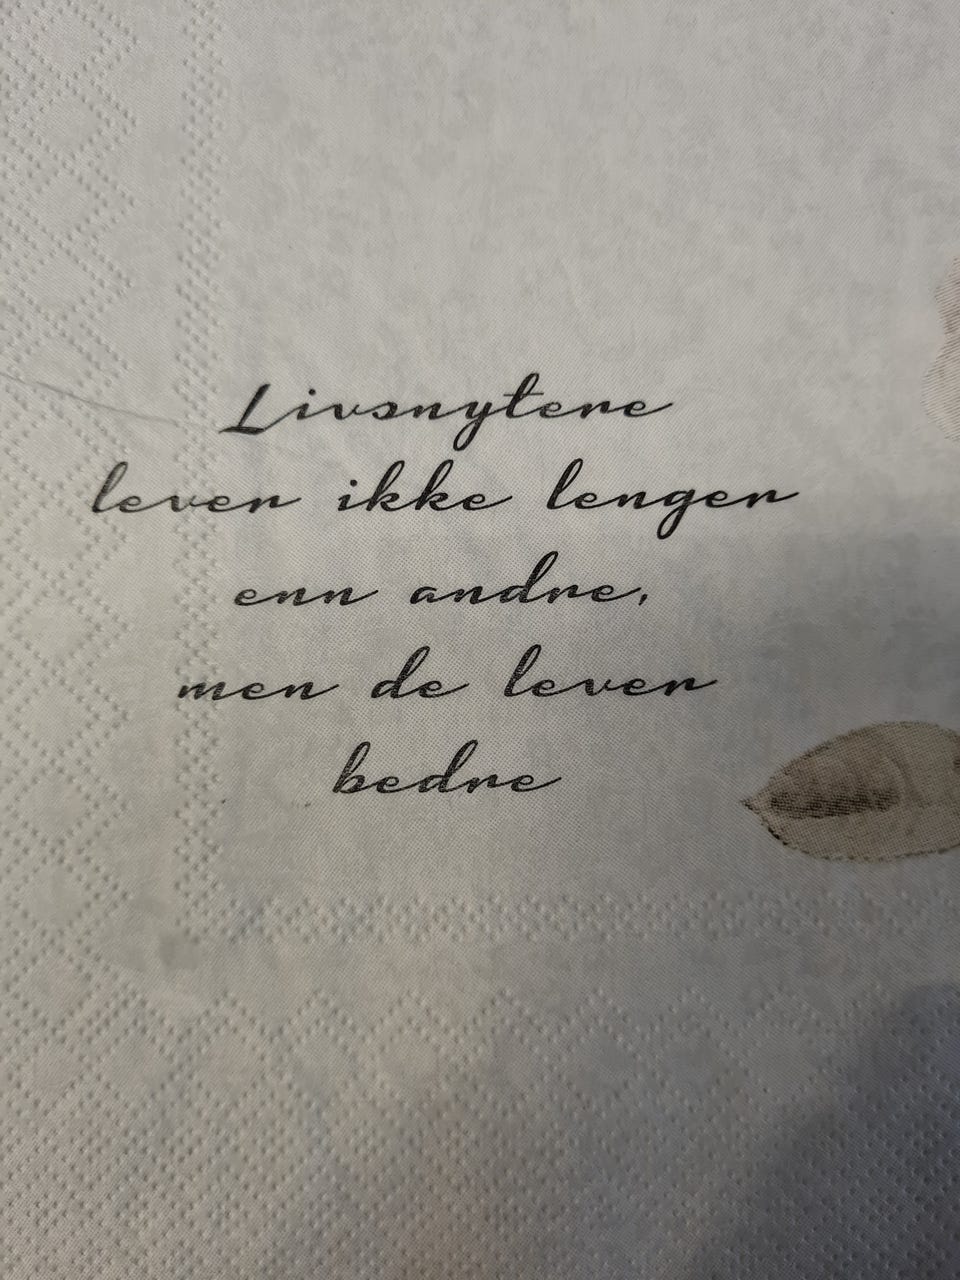 Livsnytere
lever ikke lenger
enn andre,
men de lever
bedre